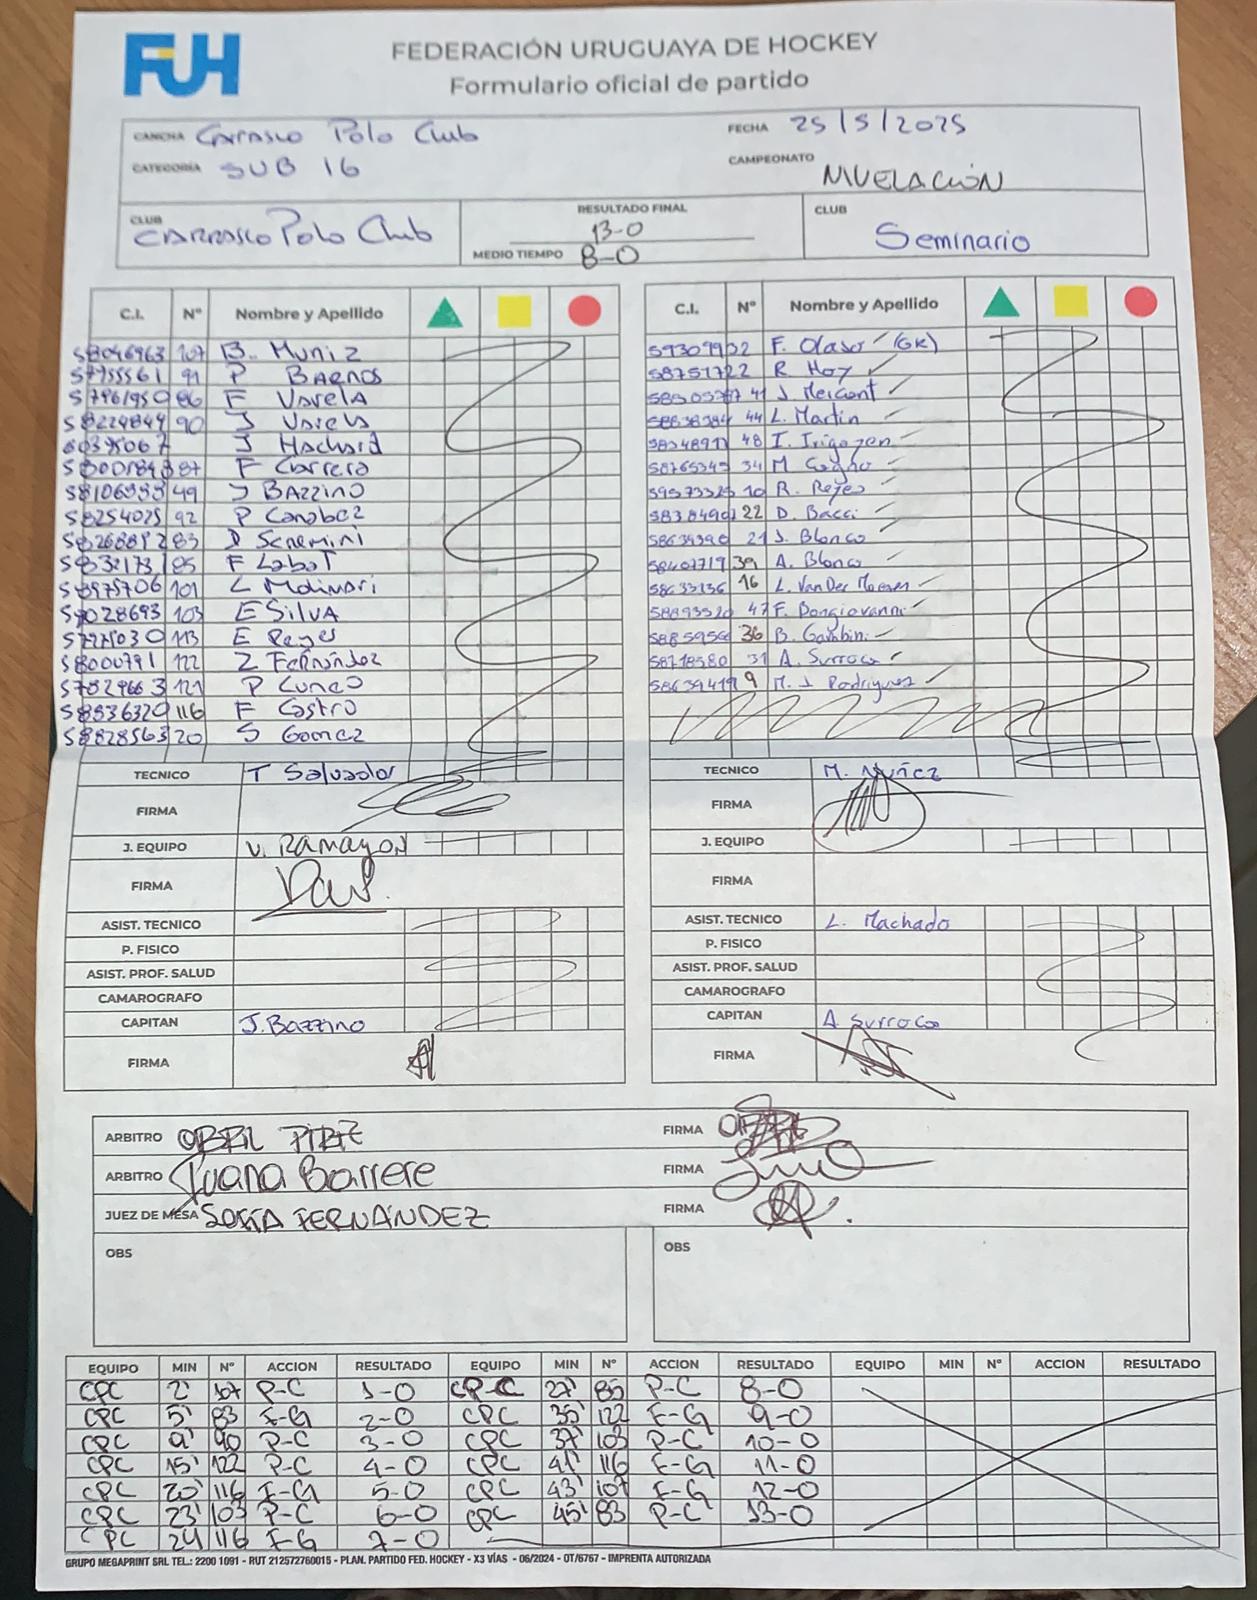 FUH
FEDERACIÓN URUGUAYA DE HOCKEY
Formulario oficial de partido
CANCHA Carrasco Polo Club
FECHA 25/5/2025
CATEGORÍA SUB 16
CAMPEONATO NIVELACIÓN
CLUB CARRASCO Polo Club
RESULTADO FINAL 13-0
MEDIO TIEMPO 8-0
CLUB Seminario
C.I. Nº Nombre y Apellido
58046963 107 B. Muniz
57955561 91 P BAENOS
57961950 86 F Varela
58224849 90 J Varela
60395067 J Hachard
58001843 87 F Carrera
58106933 49 J BAZZINO
58254025 92 P Canabez
58268812 83 D Scremini
58321731 85 F Labat
58975706 101 L Molinari
59028693 103 E SILVA
57725030 113 E Reyes
58000791 122 Z Fernández
57829663 121 P Cuneo
58936320 116 F Castro
58828563 20 S Gomez
TECNICO T Salvador
FIRMA
J. EQUIPO V. RAMAYON
FIRMA
ASIST. TECNICO
P. FISICO
ASIST. PROF. SALUD
CAMAROGRAFO
CAPITAN J. Bazzino
FIRMA
C.I. Nº Nombre y Apellido
59309932 F. Olaso (GK)
58751722 R Hoy
41 J. Meicont
44 L. Martin
48 I. Irigoyen
58765347 34 M
10 R. Reyes
58384901 22 D. Bacci
58639390 21 J. Blanco
58407719 39 A. Blanco
58633136 16 L. Van Der Maesen
58893520 47 F. Bongiovanni
5885956 36 B. Gambini
58718580 31 A. Surroca
58639419 9 M. J. Rodriguez
TECNICO M. Nuñez
FIRMA
J. EQUIPO
FIRMA
ASIST. TECNICO L. Machado
P. FISICO
ASIST. PROF. SALUD
CAMAROGRAFO
CAPITAN A. Surroca
FIRMA
ARBITRO FIRMA
ARBITRO Juana Barrere FIRMA
JUEZ DE MESA SOFIA FERNÁNDEZ FIRMA
OBS
OBS
EQUIPO MIN Nº ACCION RESULTADO EQUIPO MIN Nº ACCION RESULTADO EQUIPO MIN Nº ACCION RESULTADO
CPC 2' 107 P-C 1-0 CPC 27' 85 P-C 8-0
CPC 5' 83 F-G 2-0 CPC 35' 122 F-G 9-0
CPC 9' 90 P-C 3-0 CPC 37' 103 P-C 10-0
CPC 15' 122 P-C 4-0 CPC 41' 116 F-G 11-0
CPC 20' 116 F-G 5-0 CPC 43' 107 F-G 12-0
CPC 23' 103 P-C 6-0 CPC 45' 83 P-C 13-0
CPC 24' 116 F-G 7-0
GRUPO MEGAPRINT SRL TEL.: 2200 1091 - RUT 212572760015 - PLAN. PARTIDO FED. HOCKEY - X3 VÍAS - 06/2024 - OT/6767 - IMPRENTA AUTORIZADA